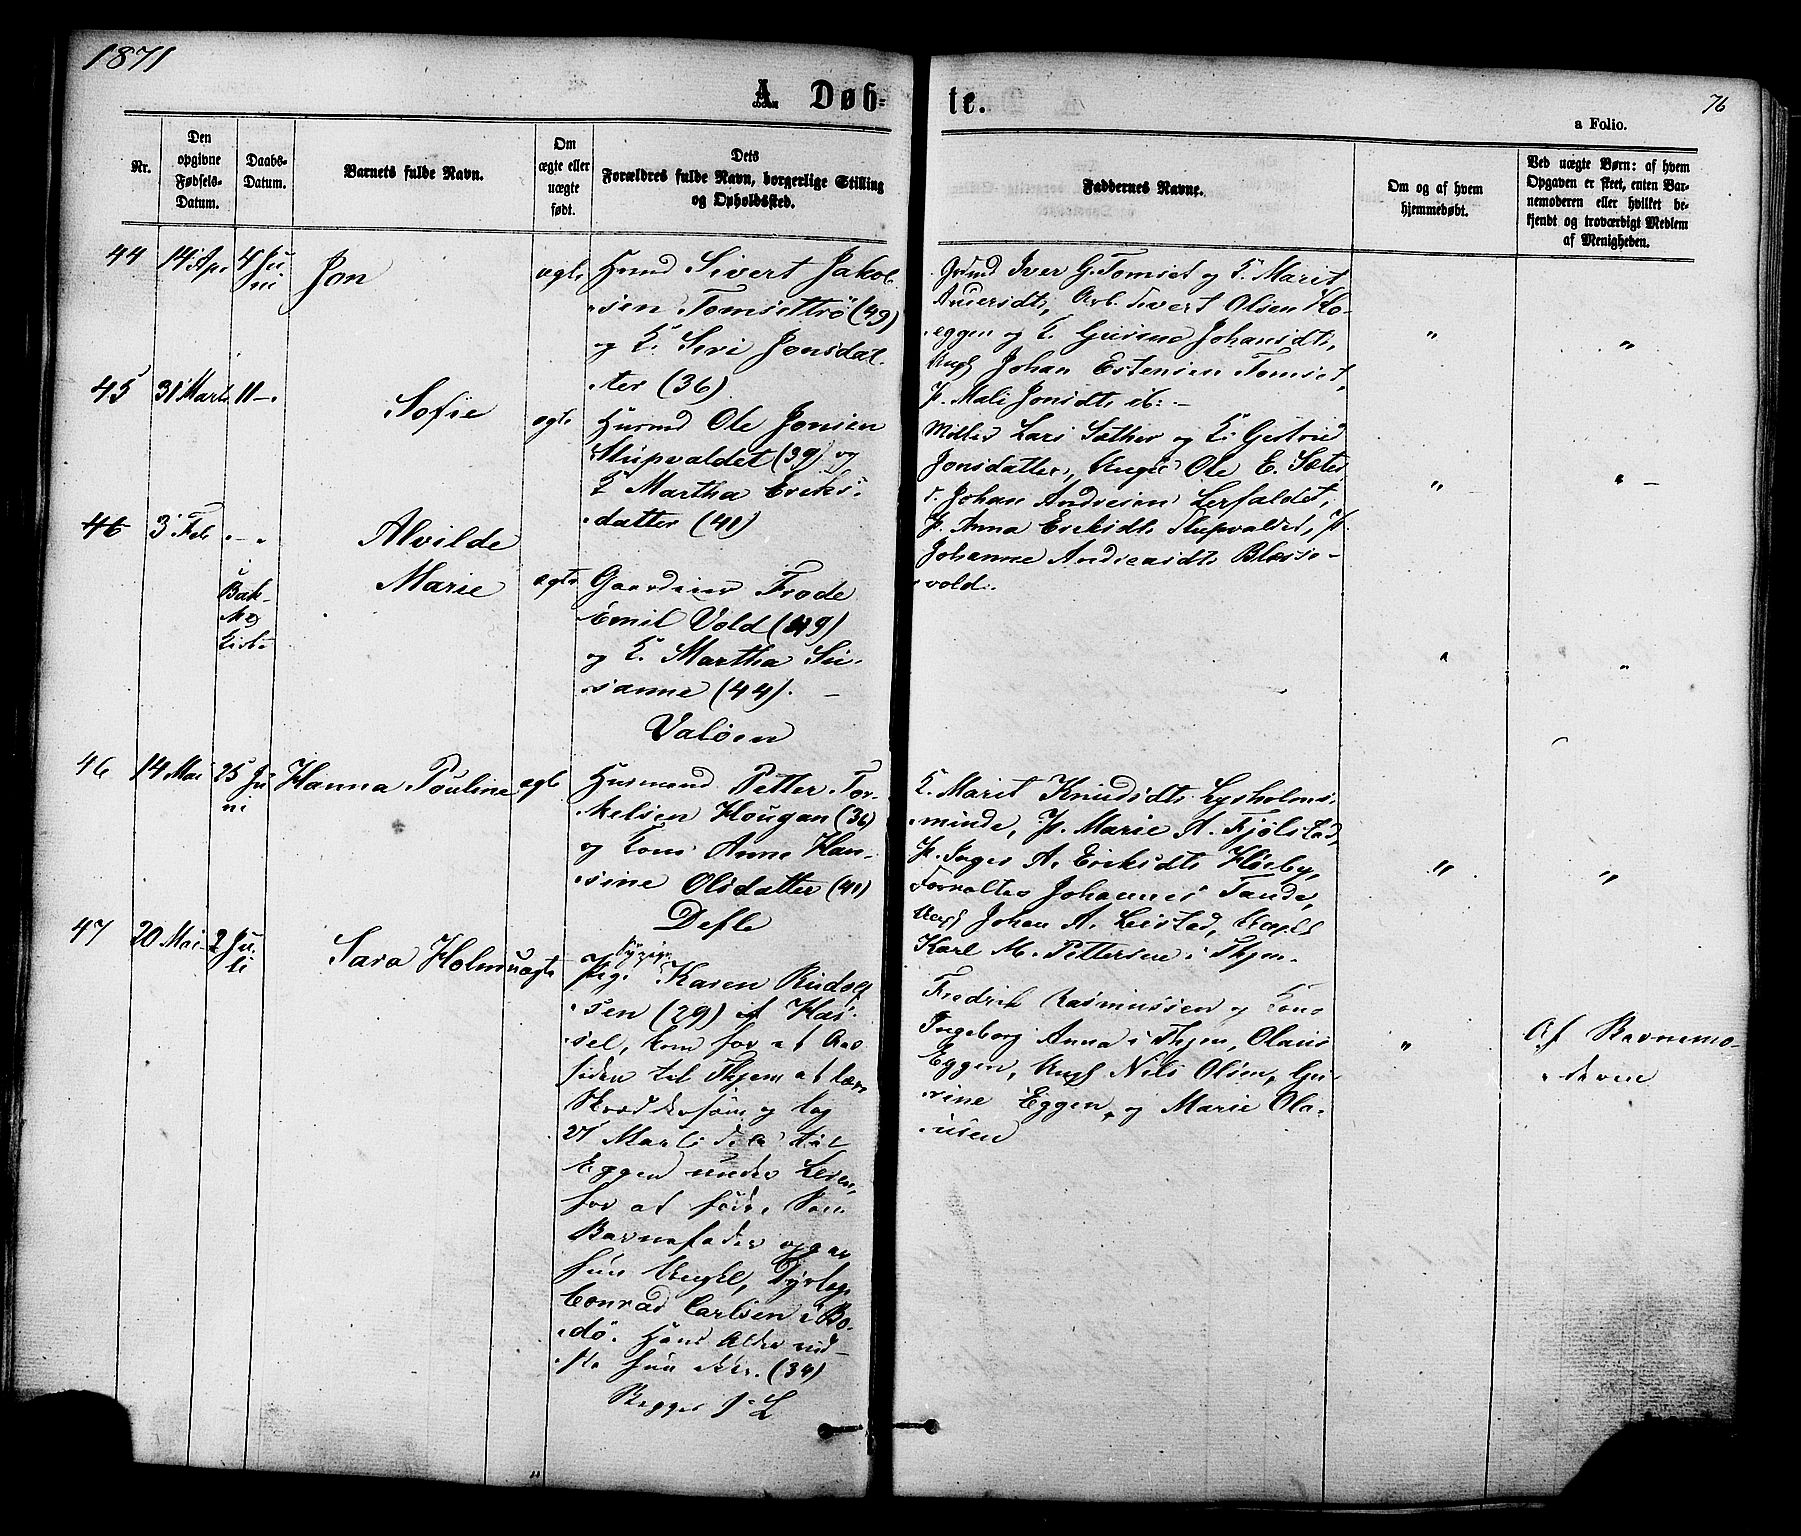 1871
A Døb-
te.
76
a Folio.
Nr.
Den
opgivne
Fødsels-
Datum.
Daabs-
Datum.
Barnets fulde Navn.
Om
ægte eller
uægte
født.
Dets
Forældres fulde Navn, borgerlige Stilling
og Opholdssted.
Faddernes Navne.
Om og af hvem
hjemmedøbt.
Ved uægte Børn: af hvem
Opgaven er skeet, enten Bar-
nemoderen eller hvilket be-
kjendt og troværdigt Medlem
af Menigheden.
44 14 Apr 4 Ju-
ni
Jon
ægte
Husmd Sivert Jakob-
sen Tomsettrø (49)
og K. Siri Jonsdat-
ter (36)
Grdmd Iver G. Tomset og K. Marit
Andersdt, Arb. Sivert Olsen Ko-
eggen og K. Gurine Johansdt,
Ungk Johan Estensen Tomset,
P. Mali Jonsdt ib: -
" "
45 31 Marts 11 -
Sofie
ægte
Husmd Ole Jonsen
Stupvaldet (39) og
K Martha Eriks-
datter (41)
Møller Lars Sæther og K.
Jonsdatter, Ungk Ole E. Sæter
Johan Andresen Lerfaldet,
P. Anna Eriksdt Stupvaldet, P.
Johanne Andreasdt Blæsse-
vold.
" " -
46 3 Feb " - "
Bak-
ke
Kirke
Alvilde
Marie
ægte
Gaardeier Frode
Emil Vold (49)
og K. Martha Su-
sanne (44). -
Valøen
" "
46 14 Mai 25 Ju
ni
Hanna Pouline
ægte
Husmand Petter Tor-
kelsen Hougan (36)
og Kone Anne Han-
sine Olsdatter (41)
Defle
K. Marit Knudsdt Lysholms-
minde, P. Marie A. Fjølstad,
P. Inger A. Eriksdt
Forvalter Johannes Tande,
Ungk Johan A. Leistad, Ungk
Karl M. Pettersen i Thjem.
" "
47 20 Mai 2 Ju-
li
Sara Holm
uægte
Pige Karen Rudolf
sen (29) af Has-
sel, kom for at
siden til Thjem at lære
Skræddersøm og tog
21 Marts
Eggen under Leren,
for at føde. Som
Barnefader opgav
hun Ungkl,
Conrad Carlsen i Bo-
dø. Hans Alder vid-
ste hun ikke. (34)
Begges 1e L
Fredrik Rasmussen og Kone
Ingeborg Anna i Thjem, Olaus
Eggen, Ungk Nils Olsen, Gu-
rine Eggen, og Marie Ola-
usen
"
Af Barnemo-
deren